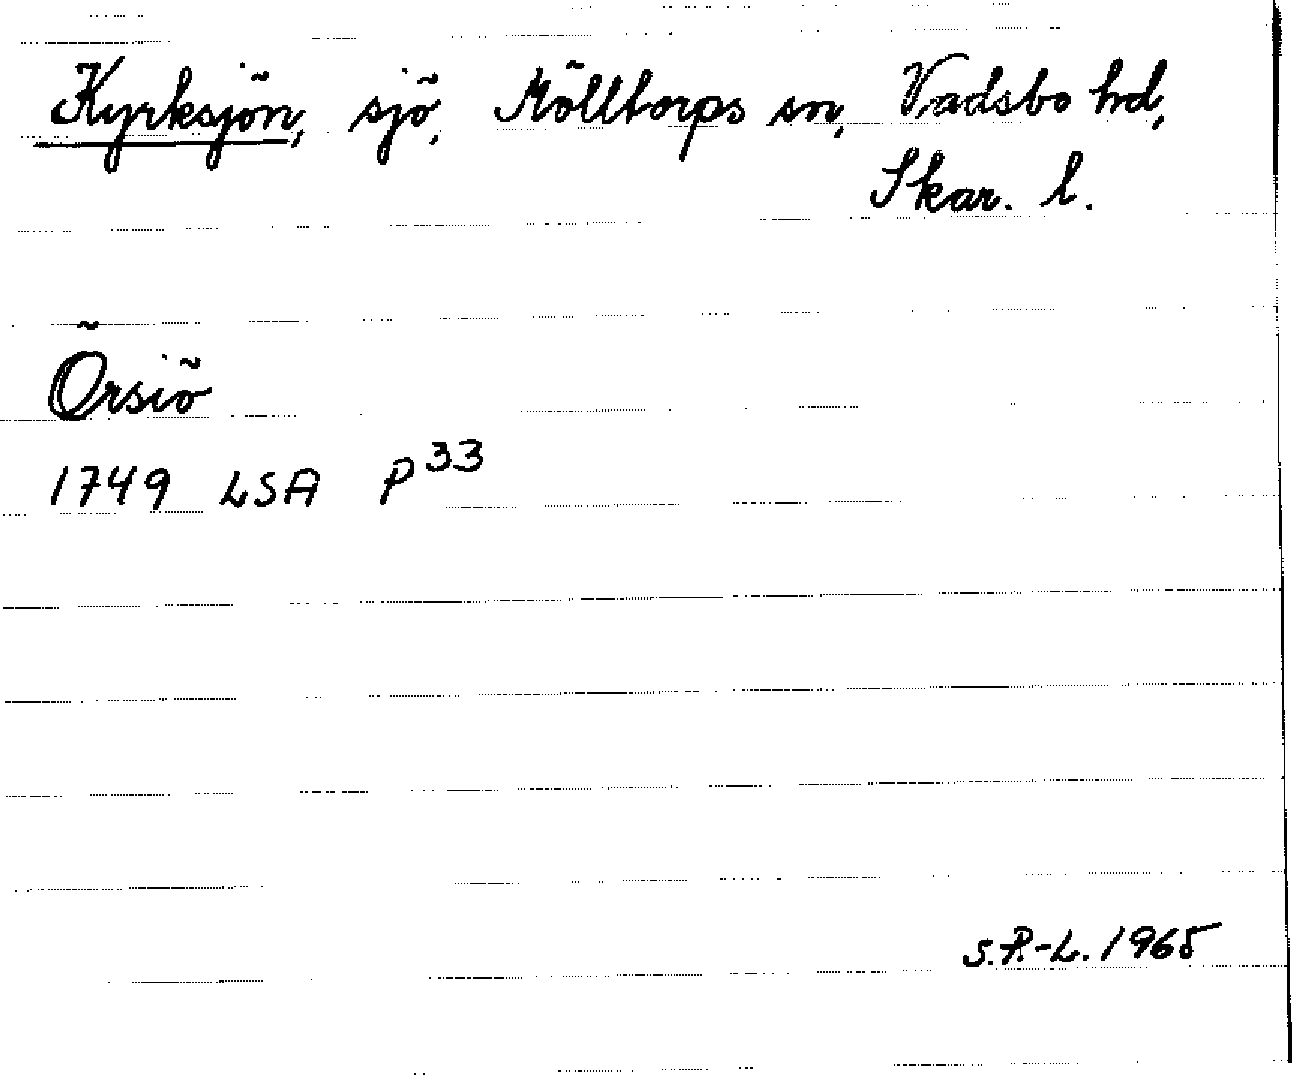 Kyrksjön, sjö, Mölltorps sn, Vadsbo hd,
Skar. l.
Örsiö
1749 LSA P³³
S.P.-L. 1965